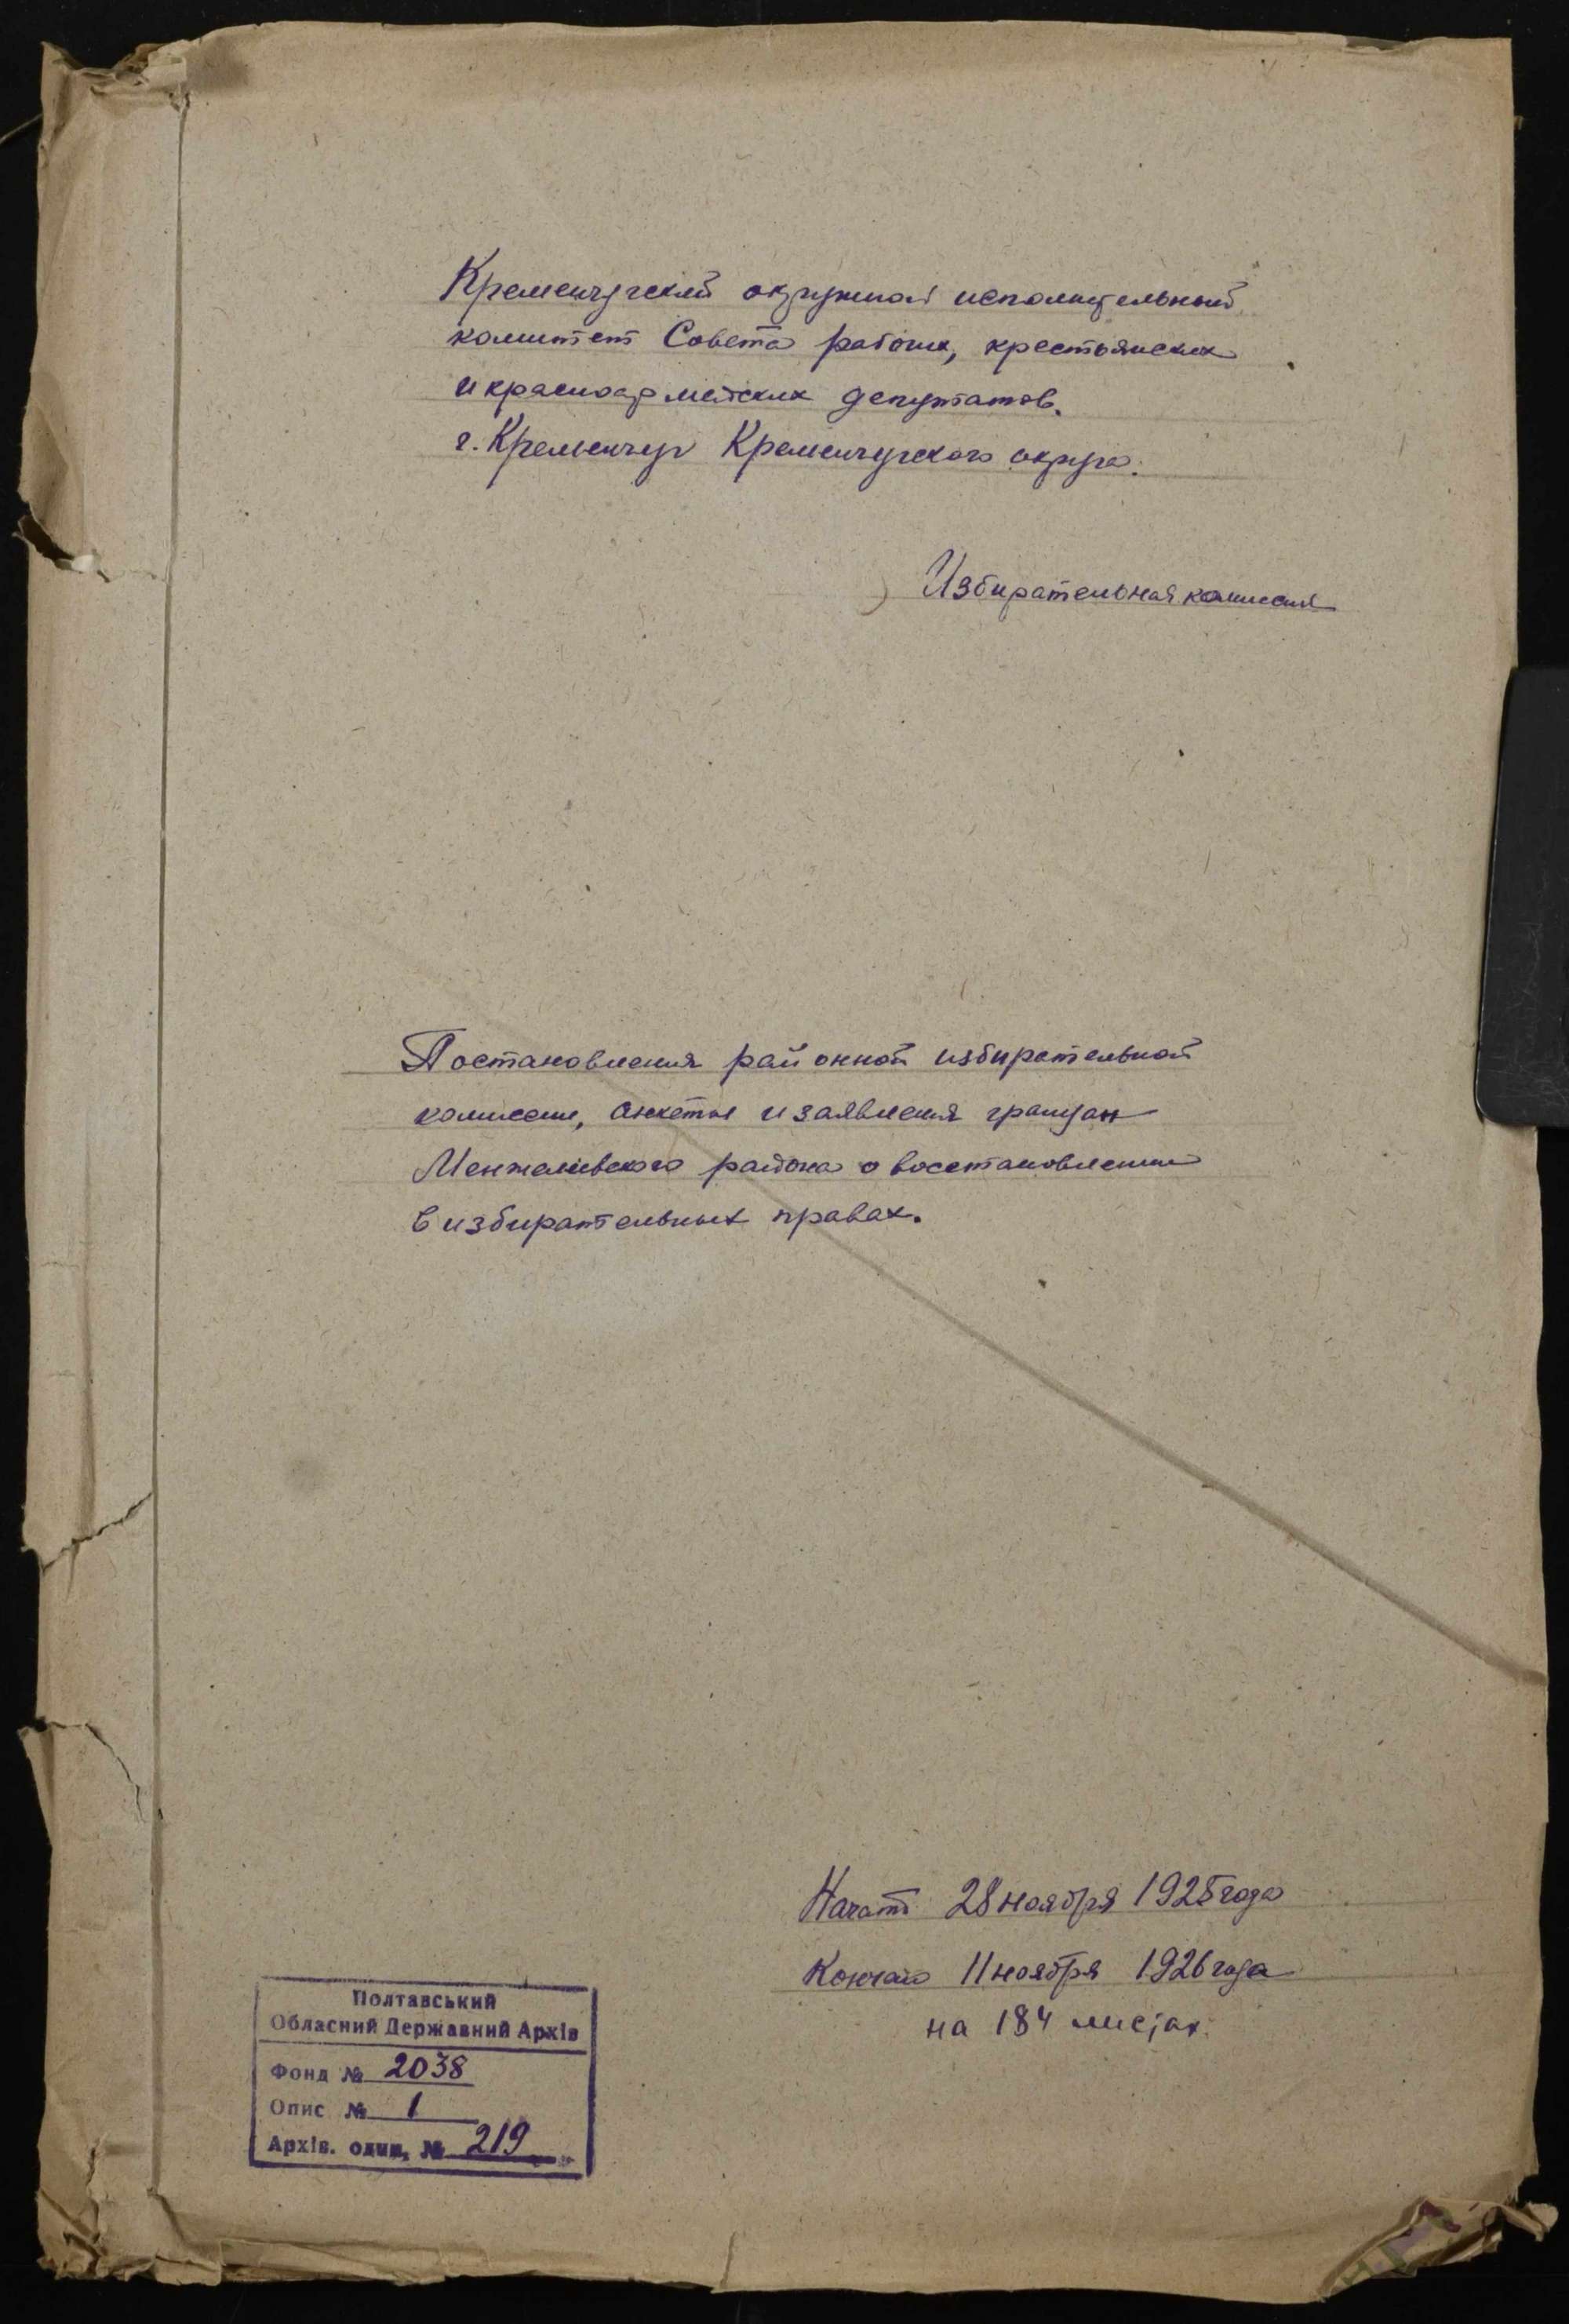 Кременчугский окружной исполнительный
комитет Совета рабочих, крестьянских
и красноармейских депутатов.
г. Кременчуг Кременчугского округа.
Избирательная комиссия
Постановления районной избирательной
комиссии, анкеты и заявления граждан
Манжелиевского района о восстановлении
в избирательных правах.
Начато 28 ноября 1925 года
Кончано 11 ноября 1926 года
на 184 листах.
Полтавський
Обласний Державний Архів
Фонд № 2038
Опис № 1
Архів. один. № 219